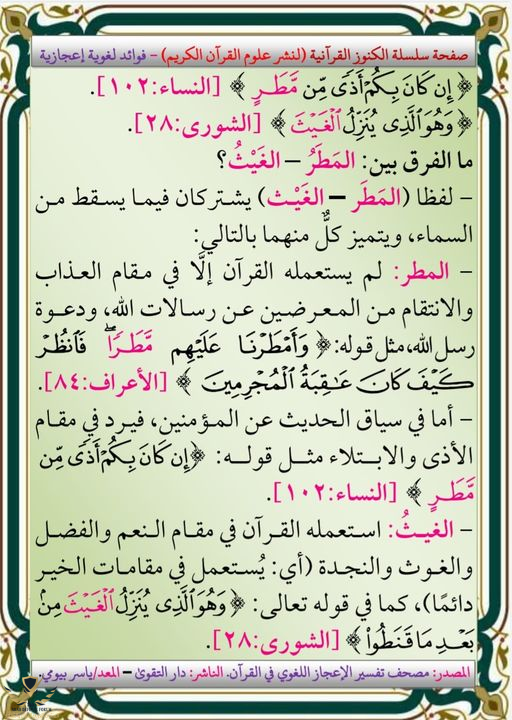 صفحة سلسلة الكنوز القرآنية (لنشر علوم القرآن الكريم) - فوائد لغوية إعجازية
﴿ إِن كَانَ بِكُمْ أَذًى مِّن مَّطَرٍ ﴾ [النساء:١٠٢].
﴿ وَهُوَ الَّذِى يُنَزِّلُ الْغَيْثَ ﴾ [الشورى:٢٨].
ما الفرق بين: المَطَرُ – الغَيْثُ؟
- لفظا (المَطَر – الغَيْث) يشتركان فيما يسقط من
السماء، ويتميز كلٌّ منهما بالتالي:
- المطر: لم يستعمله القرآن إلَّا في مقام العذاب
والانتقام من المعرضين عن رسالات الله، ودعوة
رسل الله، مثل قوله: ﴿ وَأَمْطَرْنَا عَلَيْهِم مَّطَرًا ۖ فَانظُرْ
كَيْفَ كَانَ عَٰقِبَةُ الْمُجْرِمِينَ ﴾ [الأعراف:٨٤].
- أما في سياق الحديث عن المؤمنين، فيرد في مقام
الأذى والابتلاء مثل قوله: ﴿ إِن كَانَ بِكُمْ أَذًى مِّن
مَّطَرٍ ﴾ [النساء:١٠٢].
- الغيثُ: استعمله القرآن في مقام النعم والفضل
والغوث والنجدة (أي: يُستعمل في مقامات الخير
دائمًا)، كما في قوله تعالى: ﴿ وَهُوَ الَّذِى يُنَزِّلُ الْغَيْثَ مِنۢ
بَعْدِ مَا قَنَطُوا۟ ﴾ [الشورى:٢٨].
المصدر: مصحف تفسير الإعجاز اللغوي في القرآن. الناشر: دار التقوىٰ – المعد/ياسر بيومي.